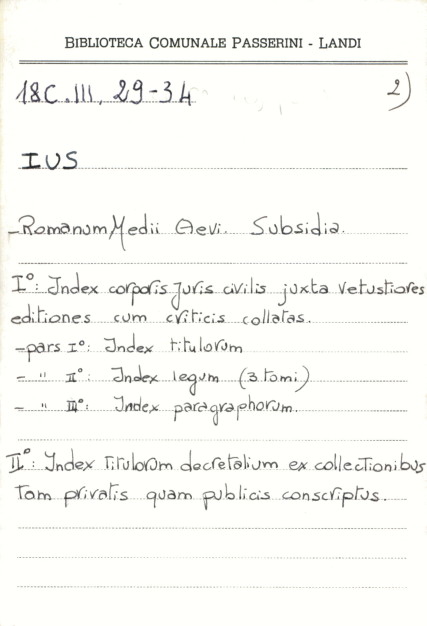 BIBLIOTECA COMUNALE PASSERINI - LANDI
18C.III, 29-34 2)
IUS
-Romanum Medii Aevi. Subsidia.
I°: Index corporis Juris civilis juxta vetustiores
editiones cum criticis collatas.
-pars I°: Index titulorum
- " II°: Index legum (3 tomi)
- " III°: Index paragraphorum.
II°: Index titulorum decretalium ex collectionibus
tam privatis quam publicis conscriptus.